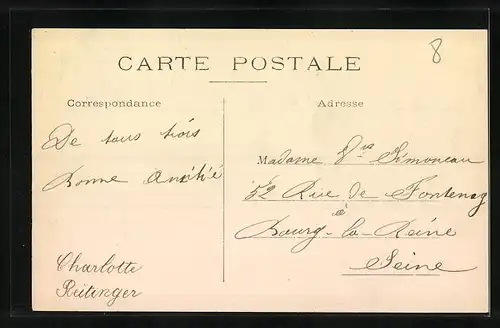 8
CARTE POSTALE
Correspondance
Adresse
De tous trois
Bonne Amitié
Charlotte
Madame Simoneau
52 Rue de Fontenay
à
Bourg-la-Reine
Seine